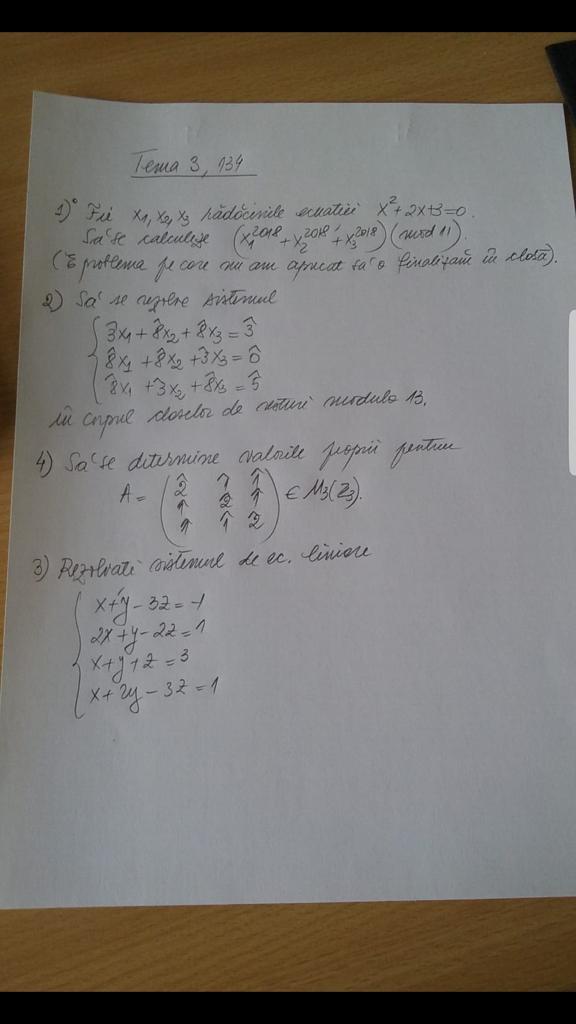 Tema 3, 134
1) Fie x1, x2, x3 rădăcinile ecuației x² + 2x+3=0.
Să se calculeze (x1^2018 + x2^2018 + x3^2018) (mod 11).
(E problema pe care nu am apucat să o finalizăm în clasă).
2) Să se rezolve sistemul
3̂x1 + 8̂x2 + 8̂x3 = 3̂
8̂x1 + 8̂x2 + 3̂x3 = 6̂
8̂x1 + 3̂x2 + 8̂x3 = 5̂
în corpul claselor de resturi modulo 13.
4) Să se determine valorile proprii pentru
A = ( 2̂ 1̂ 1̂
1̂ 2̂ 1̂
1̂ 1̂ 2̂ ) ∈ M3(Z3).
3) Rezolvați sistemul de ec. liniare
x+y - 3z = -1
2x+y - 2z = 1
x+y+z = 3
x+2y - 3z = 1